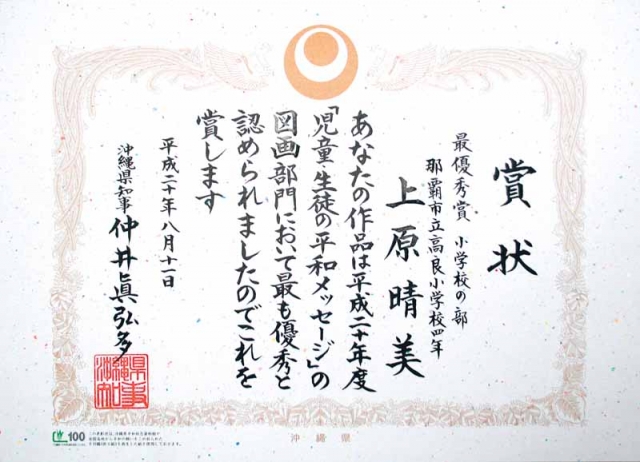 賞状
最優秀賞 小学校の部
那覇市立高良小学校四年
上原晴美
あなたの作品は平成二十年度
「児童・生徒の平和メッセージ」の
図画部門において最も優秀と
認められましたのでこれを
賞します
平成二十年八月十一日
沖縄県知事 仲井眞弘多
沖縄県知事
100
沖縄県